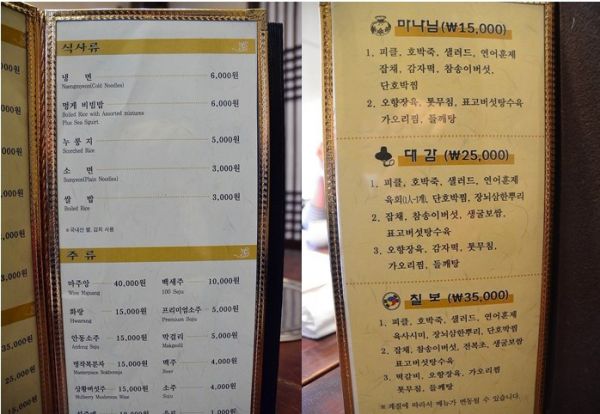 식사류
냉 면 6,000원
Naengmyeon(Cold Noodles)
멍게 비빔밥 6,000원
Boiled Rice with Assorted mixtures
Plus Sea Squirt
누 룽 지 5,000원
Scorched Rice
소 면 3,000원
Somyeon(Plain Noodles)
쌀 밥 3,000원
Boiled Rice
※국내산 쌀, 김치 사용
주 류
마주앙 40,000원
Wine Majuang
화랑 15,000원
Hwarang
안동소주 15,000원
Andong Soju
명작복분자 15,000원
Masterpiece Bokbunja
상황버섯주 15,000원
Mulberry Mushroom Wine
백세주 10,000원
100 Seju
프리미엄소주 5,000원
Premium Soju
막걸리 5,000원
Makgeolli
맥주 4,000원
Beer
소주 4,000원
Soju
마나님 (₩15,000)
1. 피클, 호박죽, 샐러드, 연어훈제
잡채, 감자떡, 참송이버섯,
단호박찜
2. 오향장육, 톳무침, 표고버섯탕수육
가오리찜, 들깨탕
대 감 (₩25,000)
1. 피클, 호박죽, 샐러드, 연어훈제
육회(1人-1개), 단호박찜, 장뇌삼한뿌리
2. 잡채, 참송이버섯, 생굴보쌈,
표고버섯탕수육
3. 오향장육, 감자떡, 톳무침,
가오리찜, 들깨탕
칠 보 (₩35,000)
1. 피클, 호박죽, 샐러드, 연어훈제,
육사시미, 장뇌삼한뿌리, 단호박찜
2. 잡채, 참송이버섯, 전복초, 생굴보쌈
표고버섯탕수육
3. 떡갈비, 오향장육, 감자떡,
톳무침, 가오리찜, 들깨탕
※ 계절에 따라서 메뉴가 변동될 수 있습니다.